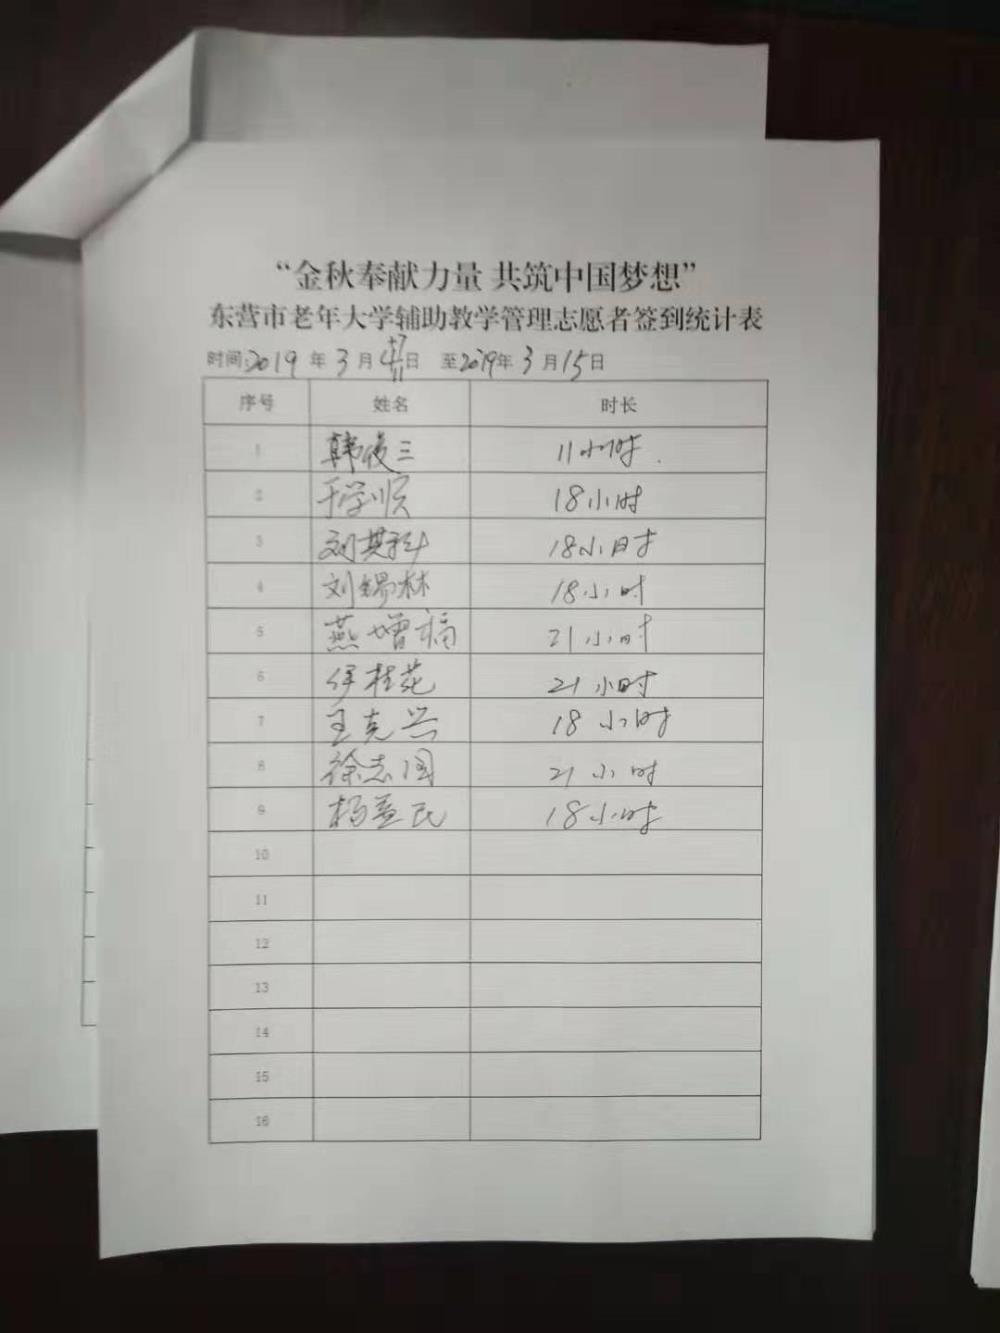 “金秋奉献力量 共筑中国梦想”
东营市老年大学辅助教学管理志愿者签到统计表
时间:2019 年 3 月 11 日 至2019年 3 月 15 日
序号 姓名 时长
1 韩俊三 11小时.
2 于学顺 18小时
3 刘其科 18小时
4 刘锡林 18小时
5 燕增福 21小时
6 伊桂花 21小时
7 王克兴 18小时
8 徐志国 21小时
9 杨益民 18小时
10
11
12
13
14
15
16